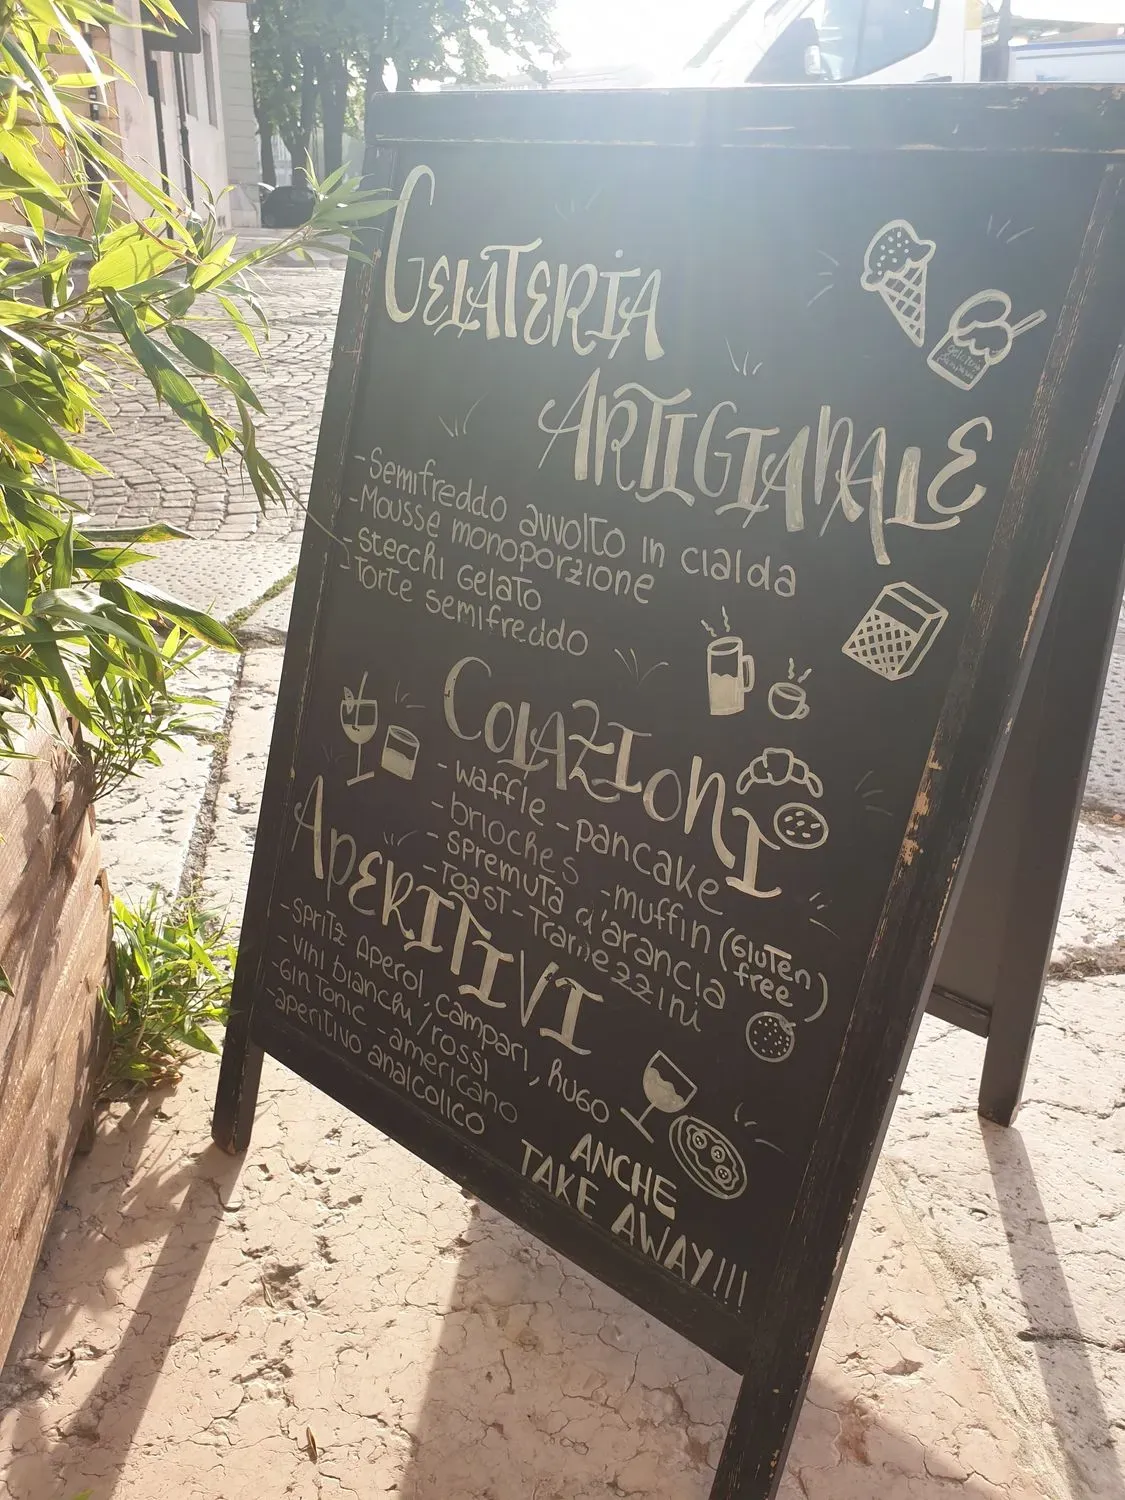 GELATERIA
ARTIGIANALE
- Semifreddo avvolto in cialda
- Mousse monoporzione
- stecchi gelato
- Torte semifreddo
COLAZIONI
- waffle - pancake
- brioches - muffin (gluten free)
- spremuta d'arancia
- Toast - Tramezzini
APERITIVI
- spritz Aperol, campari, hugo
- vini bianchi / rossi
- Gin Tonic - americano
- aperitivo analcolico
ANCHE
TAKE AWAY!!!